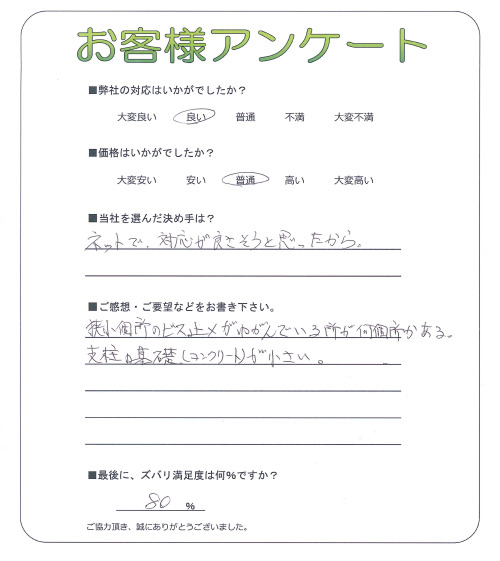 お客様アンケート
■弊社の対応はいかがでしたか？
大変良い 良い 普通 不満 大変不満
■価格はいかがでしたか？
大変安い 安い 普通 高い 大変高い
■当社を選んだ決め手は？
ネットで、対応が良さそうと思ったから。
■ご感想・ご要望などをお書き下さい。
狭小個所のビス止メがゆがんでいる所が何個所かある。
支柱の基礎(コンクリート)が小さい。
■最後に、ズバリ満足度は何%ですか？
80 %
ご協力頂き、誠にありがとうございました。